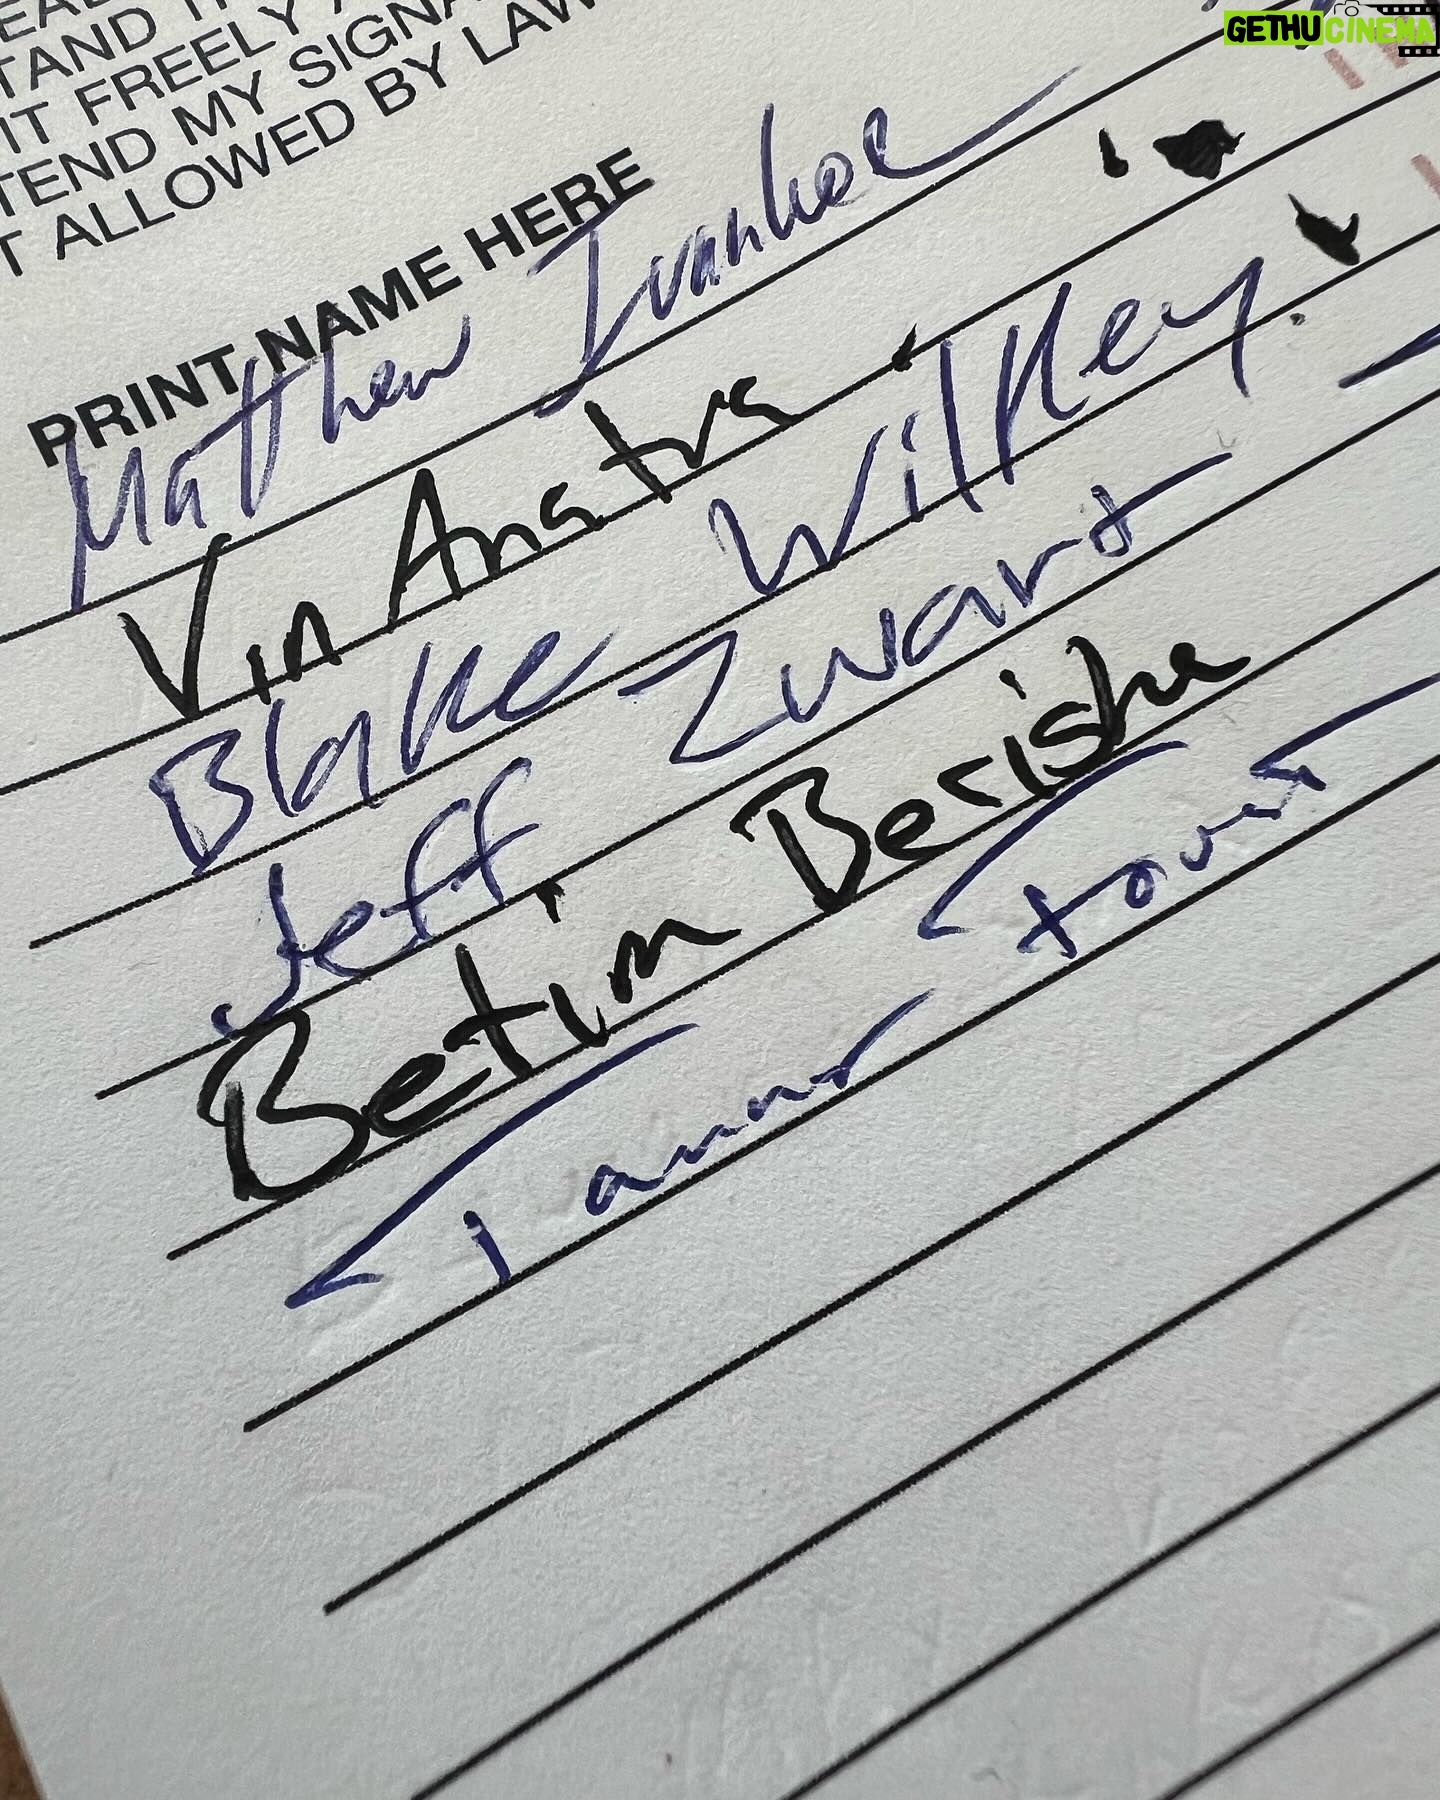 GETHUCINEMA
TAND
IT FREELY
TEND MY SIGNA
T ALLOWED BY LAW
PRINT NAME HERE
Matthew Ivanhoe
Vin Anatra
Blake Wilkey.
Jeff Zwart
Betim Berisha
Tanner Foust